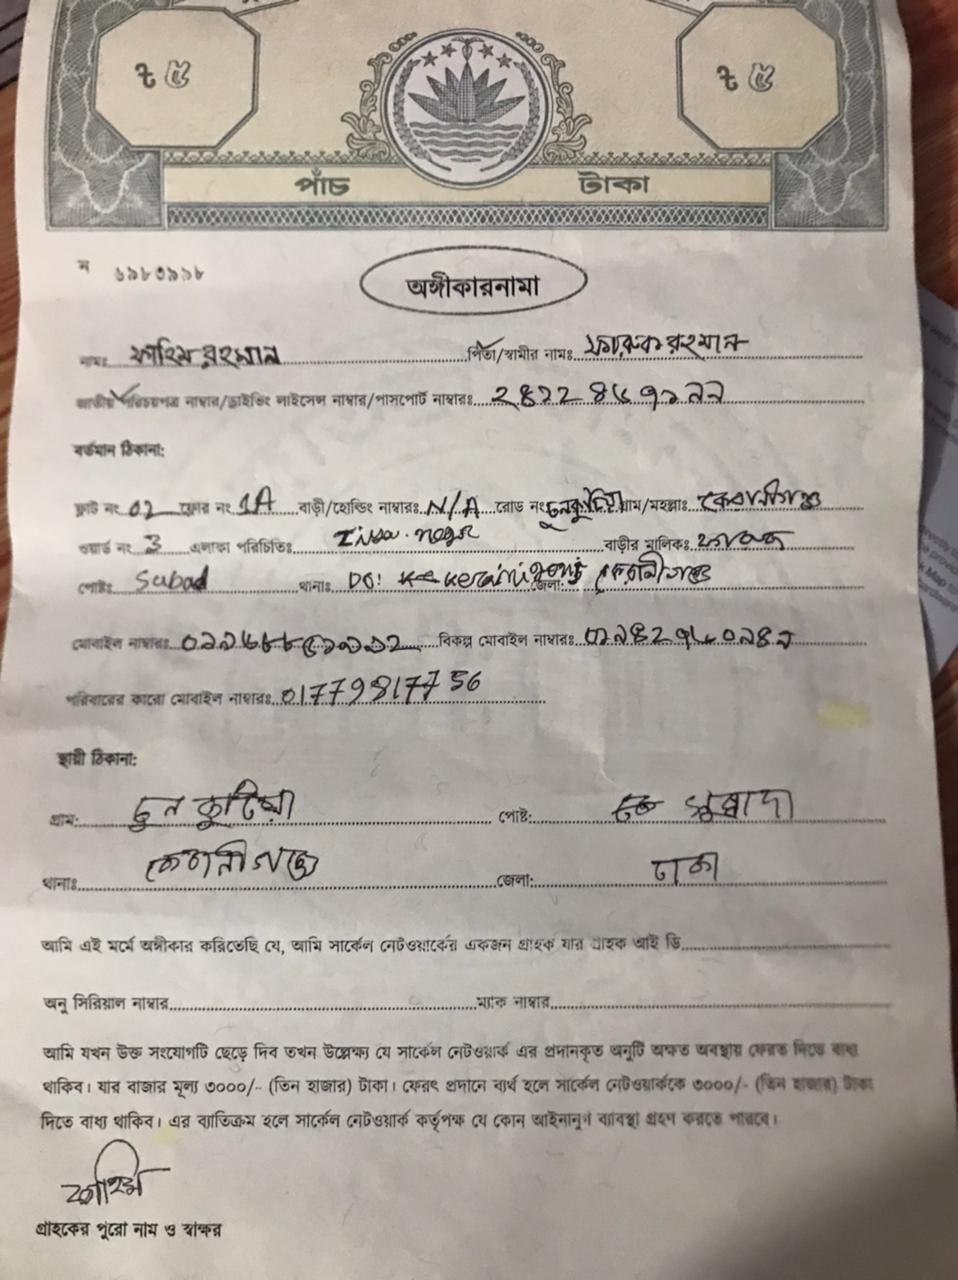 ৳ ৫ ৳ ৫
পাঁচ টাকা
ন ৬৯৮৩৯৯৮
অঙ্গীকারনামা
নামঃ ফাহিম রহমান পিতা/স্বামীর নামঃ ফারুক রহমান
জাতীয় পরিচয়পত্র নাম্বার/ড্রাইভিং লাইসেন্স নাম্বার/পাসপোর্ট নাম্বারঃ
বর্তমান ঠিকানা:
ফ্লাট নং 02 ফ্লোর নং 1A বাড়ী/হোল্ডিং নাম্বারঃ N/A রোড নং চুনকুটিয়া গ্রাম/মহল্লাঃ কেরানীগঞ্জ
ওয়ার্ড নং 3 এলাকা পরিচিতিঃ বাড়ীর মালিকঃ
পোষ্টঃ Subad থানাঃ DO: keraniganj জেলা: কেরানীগঞ্জ
মোবাইল নাম্বারঃ বিকল্প মোবাইল নাম্বারঃ
পরিবারের কারো মোবাইল নাম্বারঃ 01779817756
স্থায়ী ঠিকানা:
গ্রাম: চুনকুটিয়া পোষ্ট:
থানাঃ কেরানীগঞ্জ জেলা: ঢাকা
আমি এই মর্মে অঙ্গীকার করিতেছি যে, আমি সার্কেল নেটওয়ার্কের একজন গ্রাহক যার গ্রাহক আই ডি
অনু সিরিয়াল নাম্বার ম্যাক নাম্বার
আমি যখন উক্ত সংযোগটি ছেড়ে দিব তখন উল্লেক্ষ্য যে সার্কেল নেটওয়ার্ক এর প্রদানকৃত অনুটি অক্ষত অবস্থায় ফেরত দিতে বাধ্য
থাকিব। যার বাজার মূল্য ৩০০০/- (তিন হাজার) টাকা। ফেরৎ প্রদানে ব্যর্থ হলে সার্কেল নেটওয়ার্ককে ৩০০০/- (তিন হাজার) টাকা
দিতে বাধ্য থাকিব। এর ব্যাতিক্রম হলে সার্কেল নেটওয়ার্ক কর্তৃপক্ষ যে কোন আইনানুগ ব্যাবস্থা গ্রহণ করতে পারবে।
ফাহিম
গ্রাহকের পুরো নাম ও স্বাক্ষর